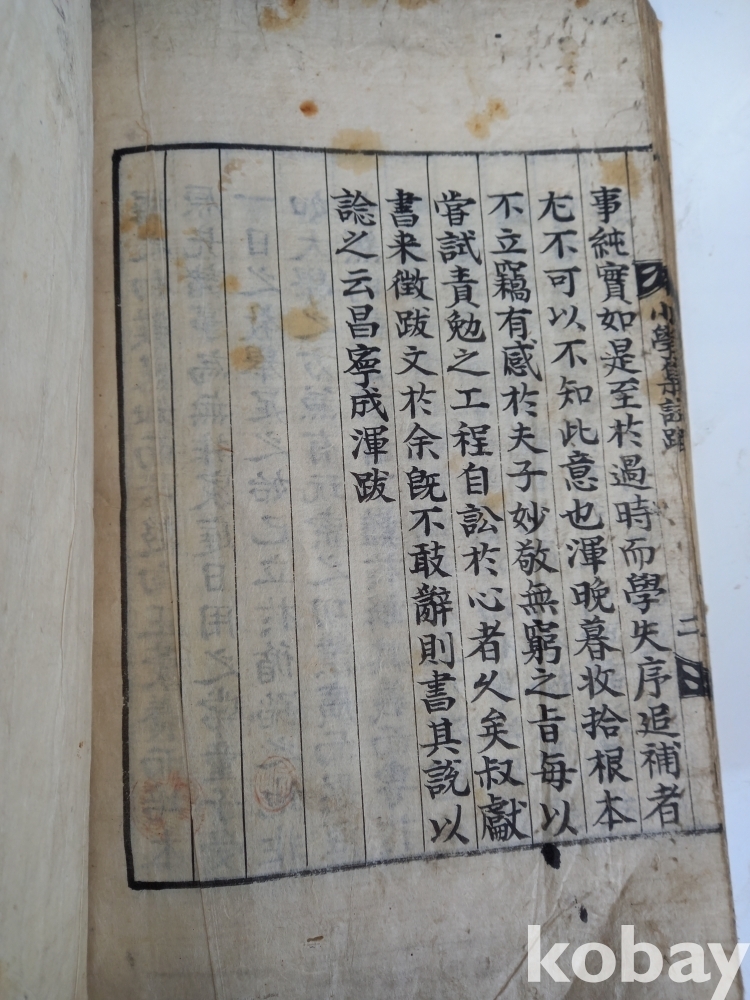 小學集註跋
二
事純實如是至於過時而學失序追補者
尢不可以不知此意也渾晚暮收拾根本
不立竊有感於夫子妙敬無窮之旨每以
嘗試責勉之工程自訟於心者久矣叔獻
書来徵跋文於余旣不敢辭則書其說以
諗之云昌寧成渾跋
kobay